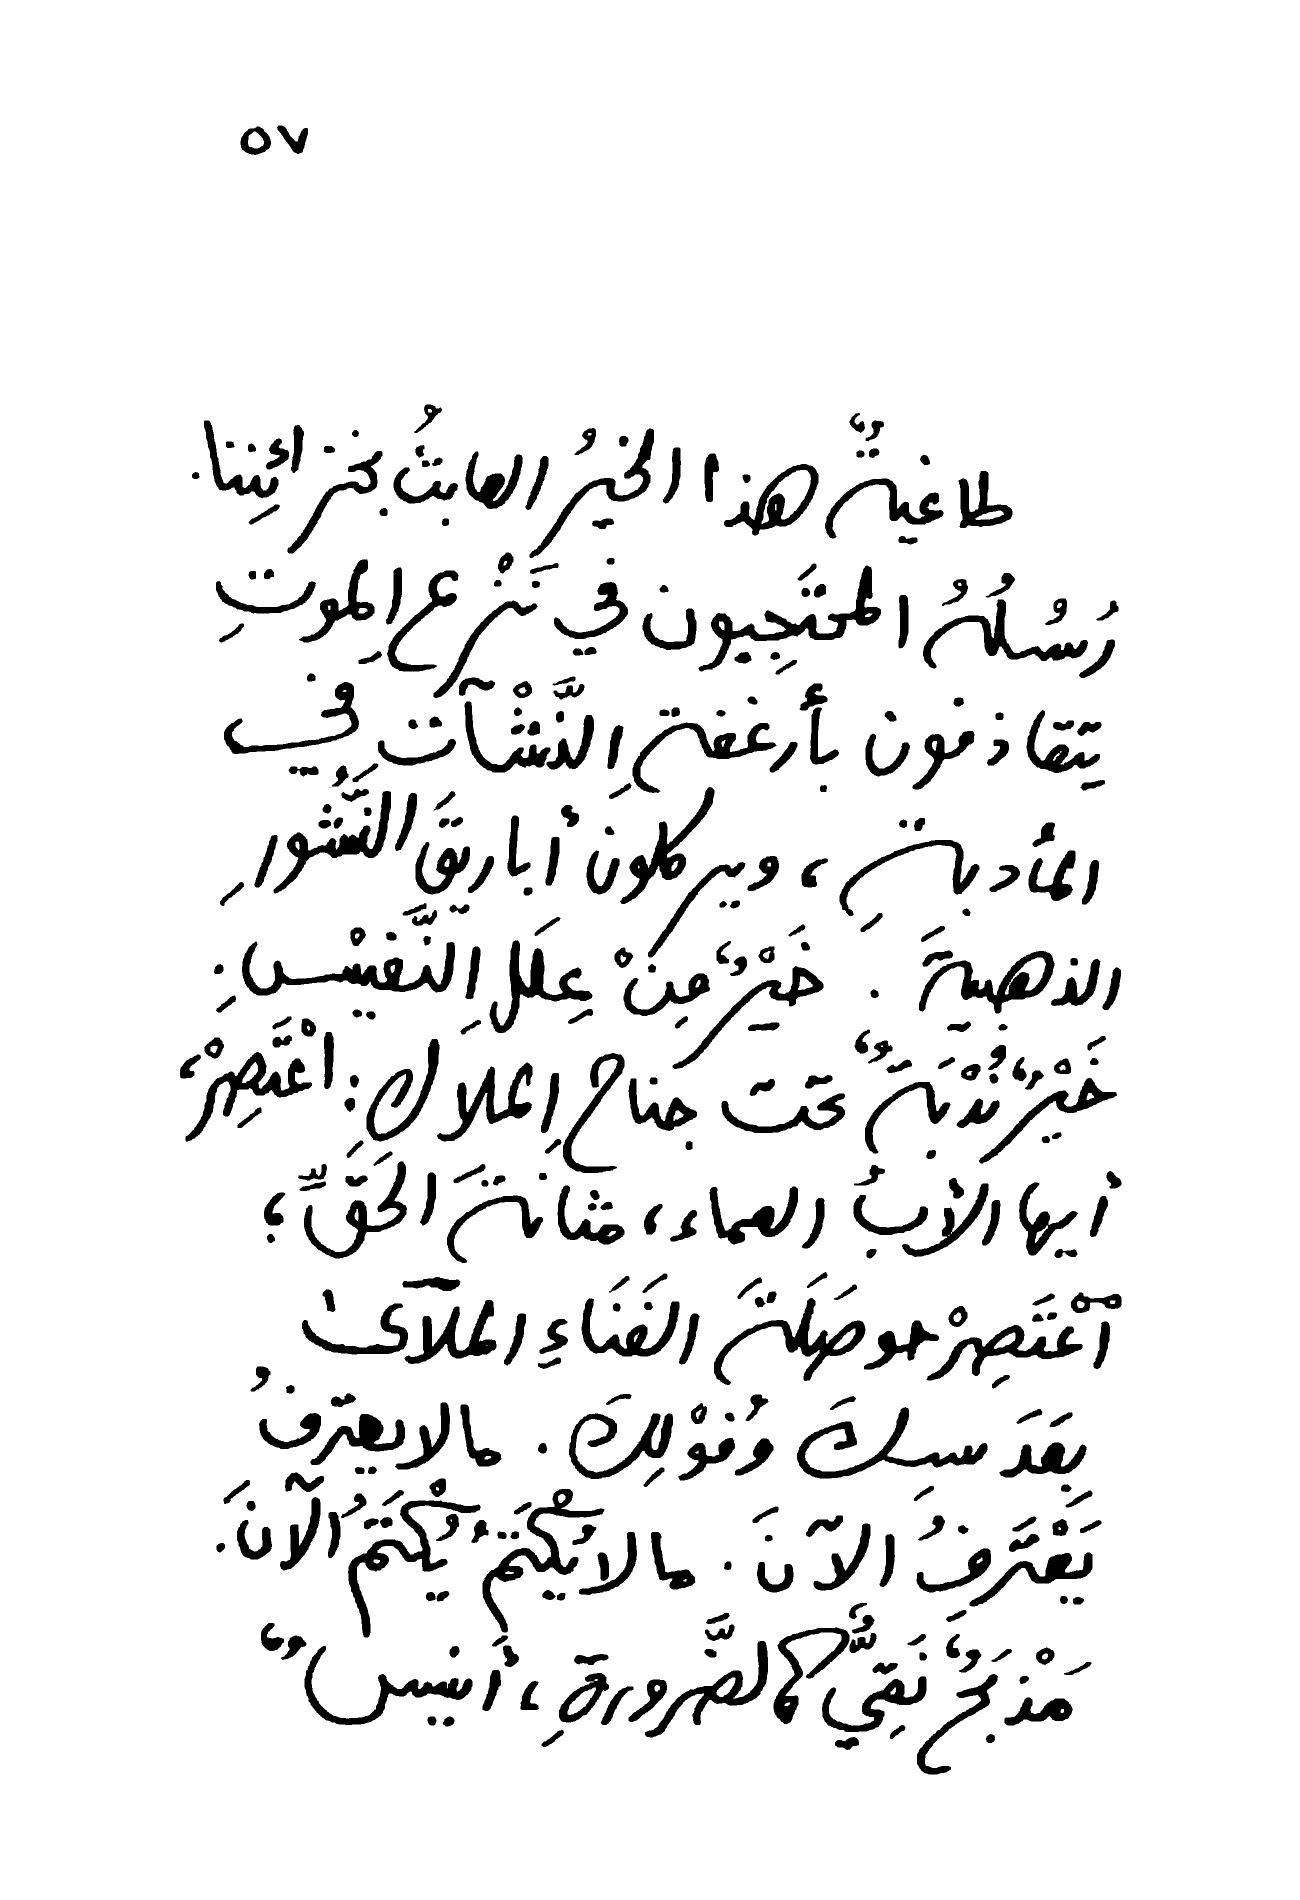 ٥٧
طاغيةٌ هذا الخيرُ العابثُ بخزائِننا.
رُسُلُهُ المحتَجِبون في نَزْعِ الموتِ
يتقاذفون بأرغفةِ النَّشْآتِ في
المأدبةِ ، ويركلون أباريقَ النُّشُورِ
الذهبيةَ . خَيْرٌ مِنْ عِلَلِ النَّفيْسِ.
خَيْرٌ نُدْبَةٌ تحت جناحِ الملاكِ: اعْتَصِرْ،
أيها الأبُ العماء، مثانةَ الحَقِّ؛
اَعْتَصِرْ حوصَلَةَ الفَنَاءِ الملآى
بِعَدَسِكَ وَفُوْلِكَ . مالا يعترفُ
يَعْتَرِفُ الآنَ . مالا يُكْتَمُ يُكْتَمُ الآنَ.
مَذْبَحٌ نَقِيٌّ كالضَّرورةِ ، أنيسٌ